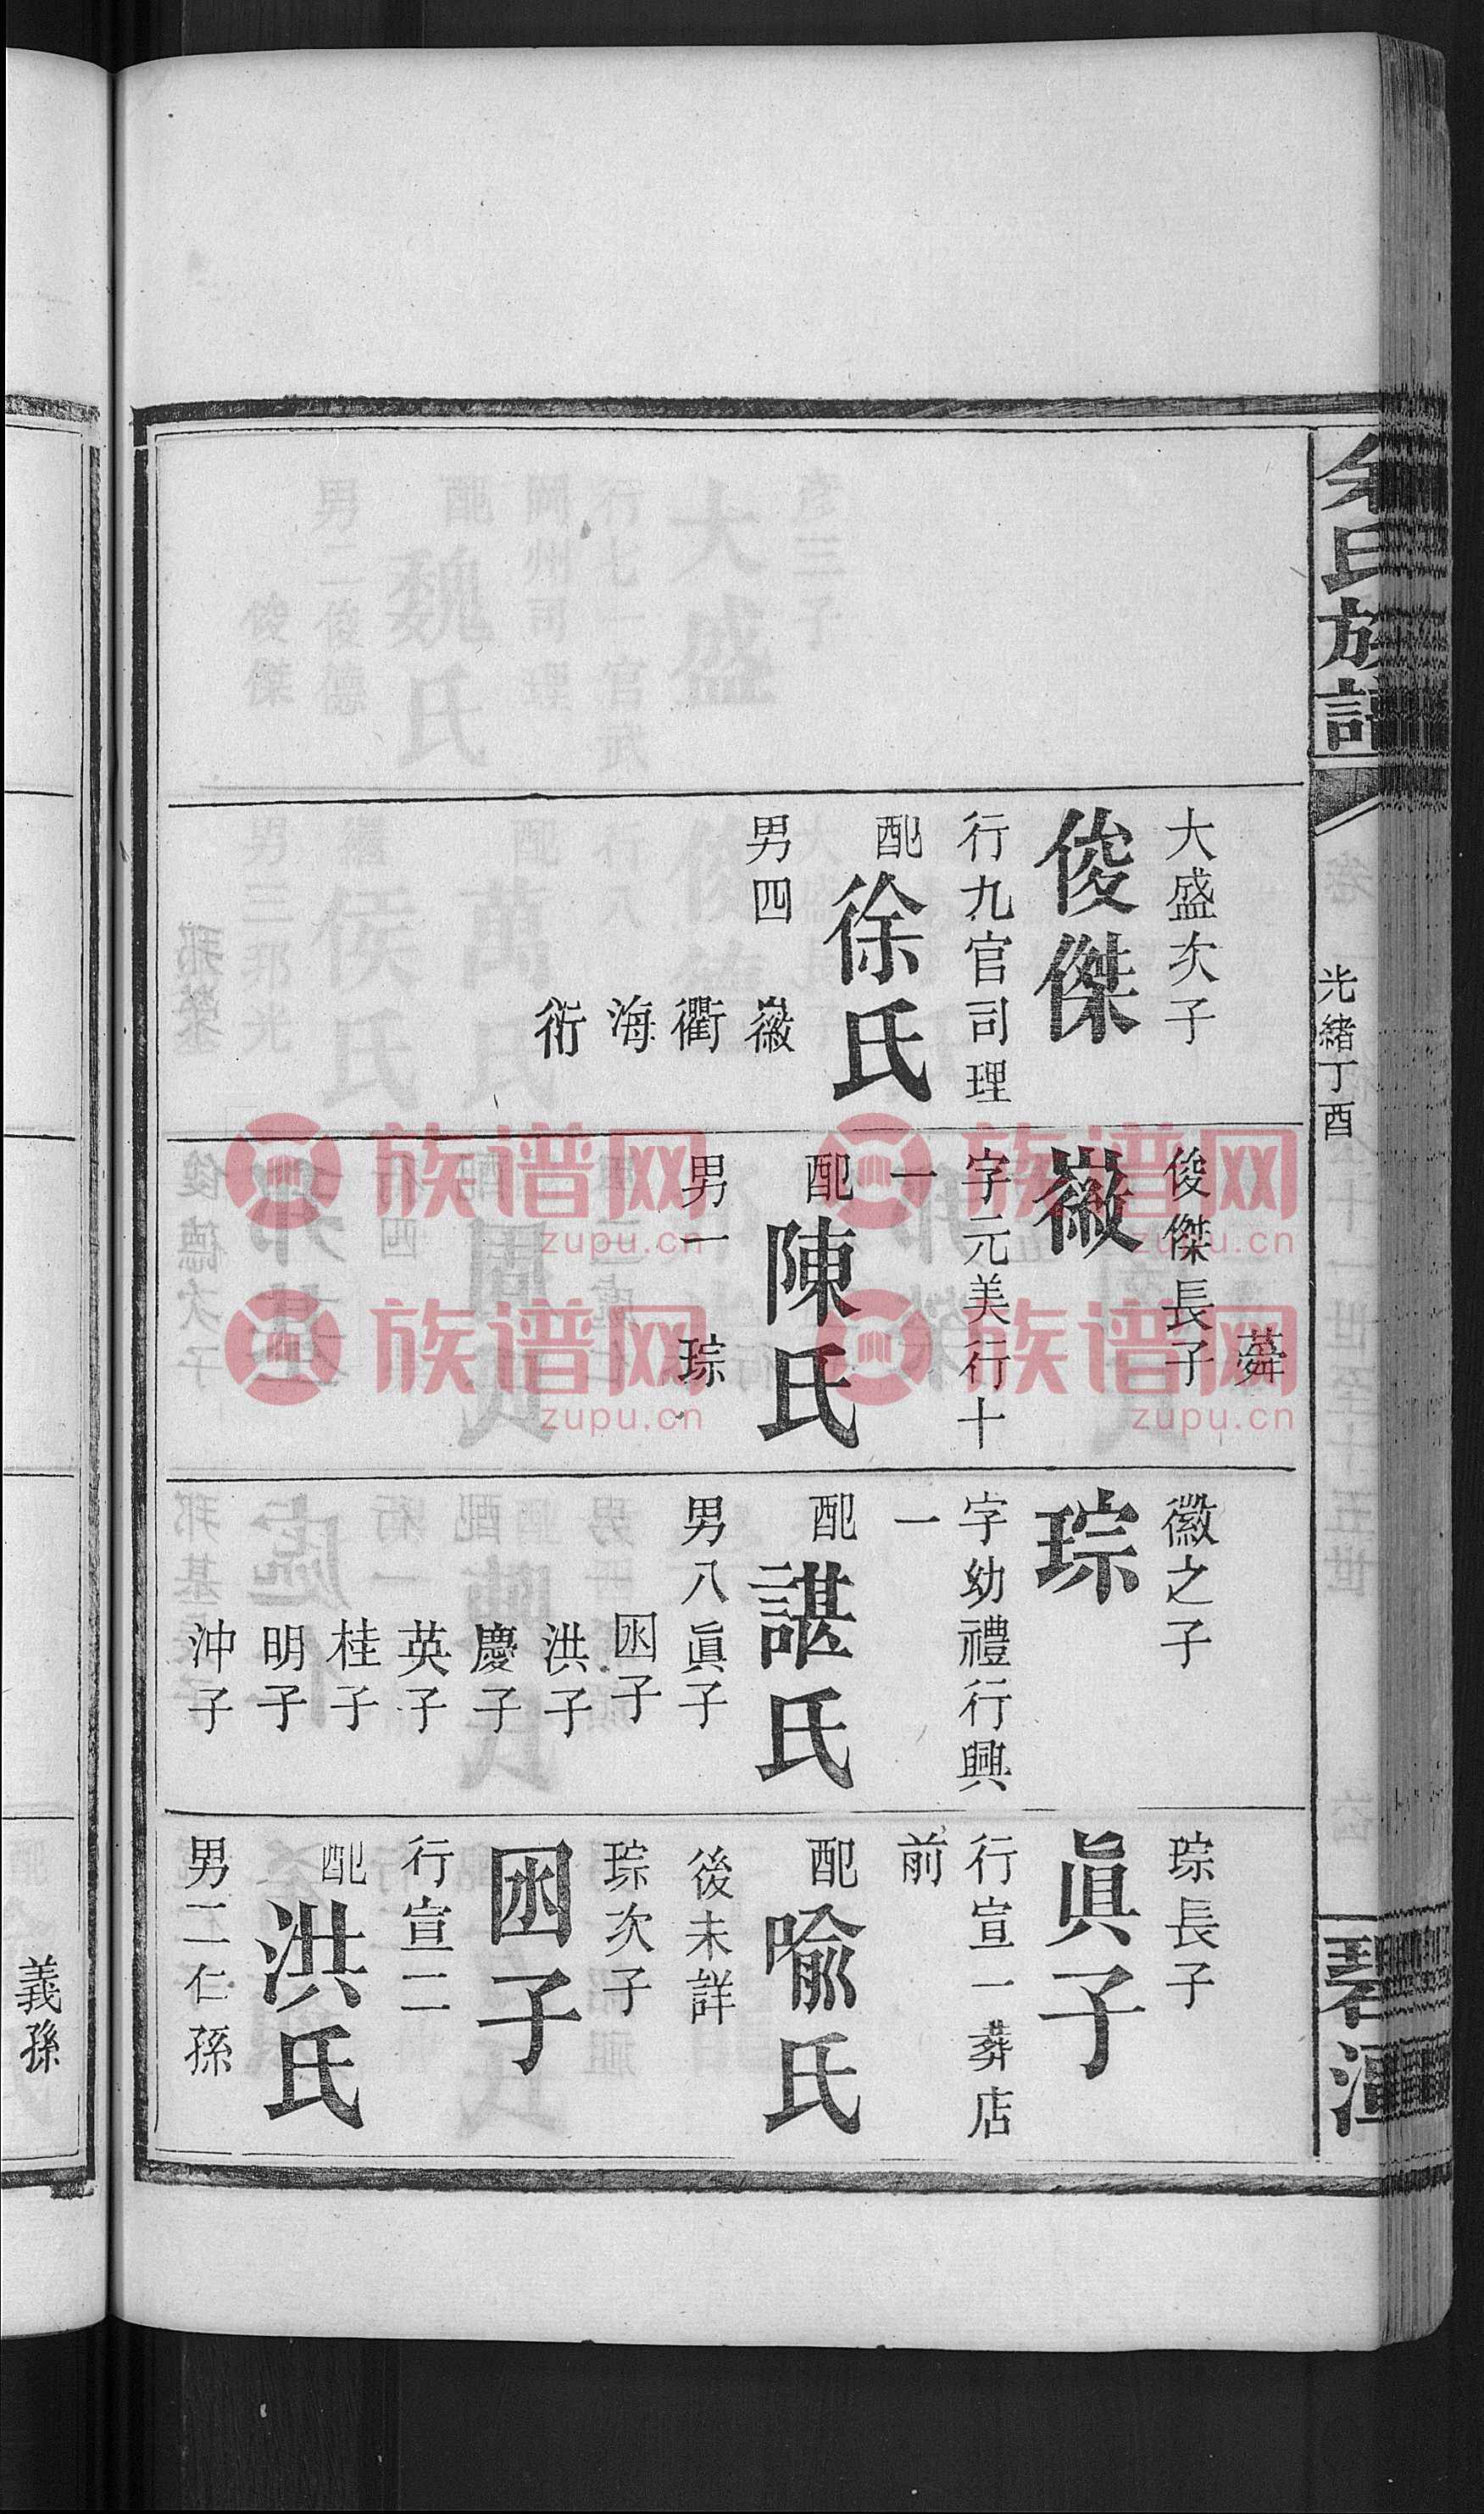 余氏族譜
光緒丁酉
碧潭
大盛次子
俊傑
行九官司理
配徐氏
男四 徽
衢
海
衍
蕣
俊傑長子
徽
字元美行十
一
配陳氏
男一 琮
徽之子
琮
字幼禮行興
一
配諶氏
男八眞子
囦子
洪子
慶子
英子
桂子
明子
沖子
琮長子
眞子
行宣一葬店
前
配喻氏
後未詳
琮次子
囦子
行宣二
配洪氏
男二仁孫
義孫
族谱网
zupu.cn
族谱网
zupu.cn
族谱网
zupu.cn
族谱网
zupu.cn